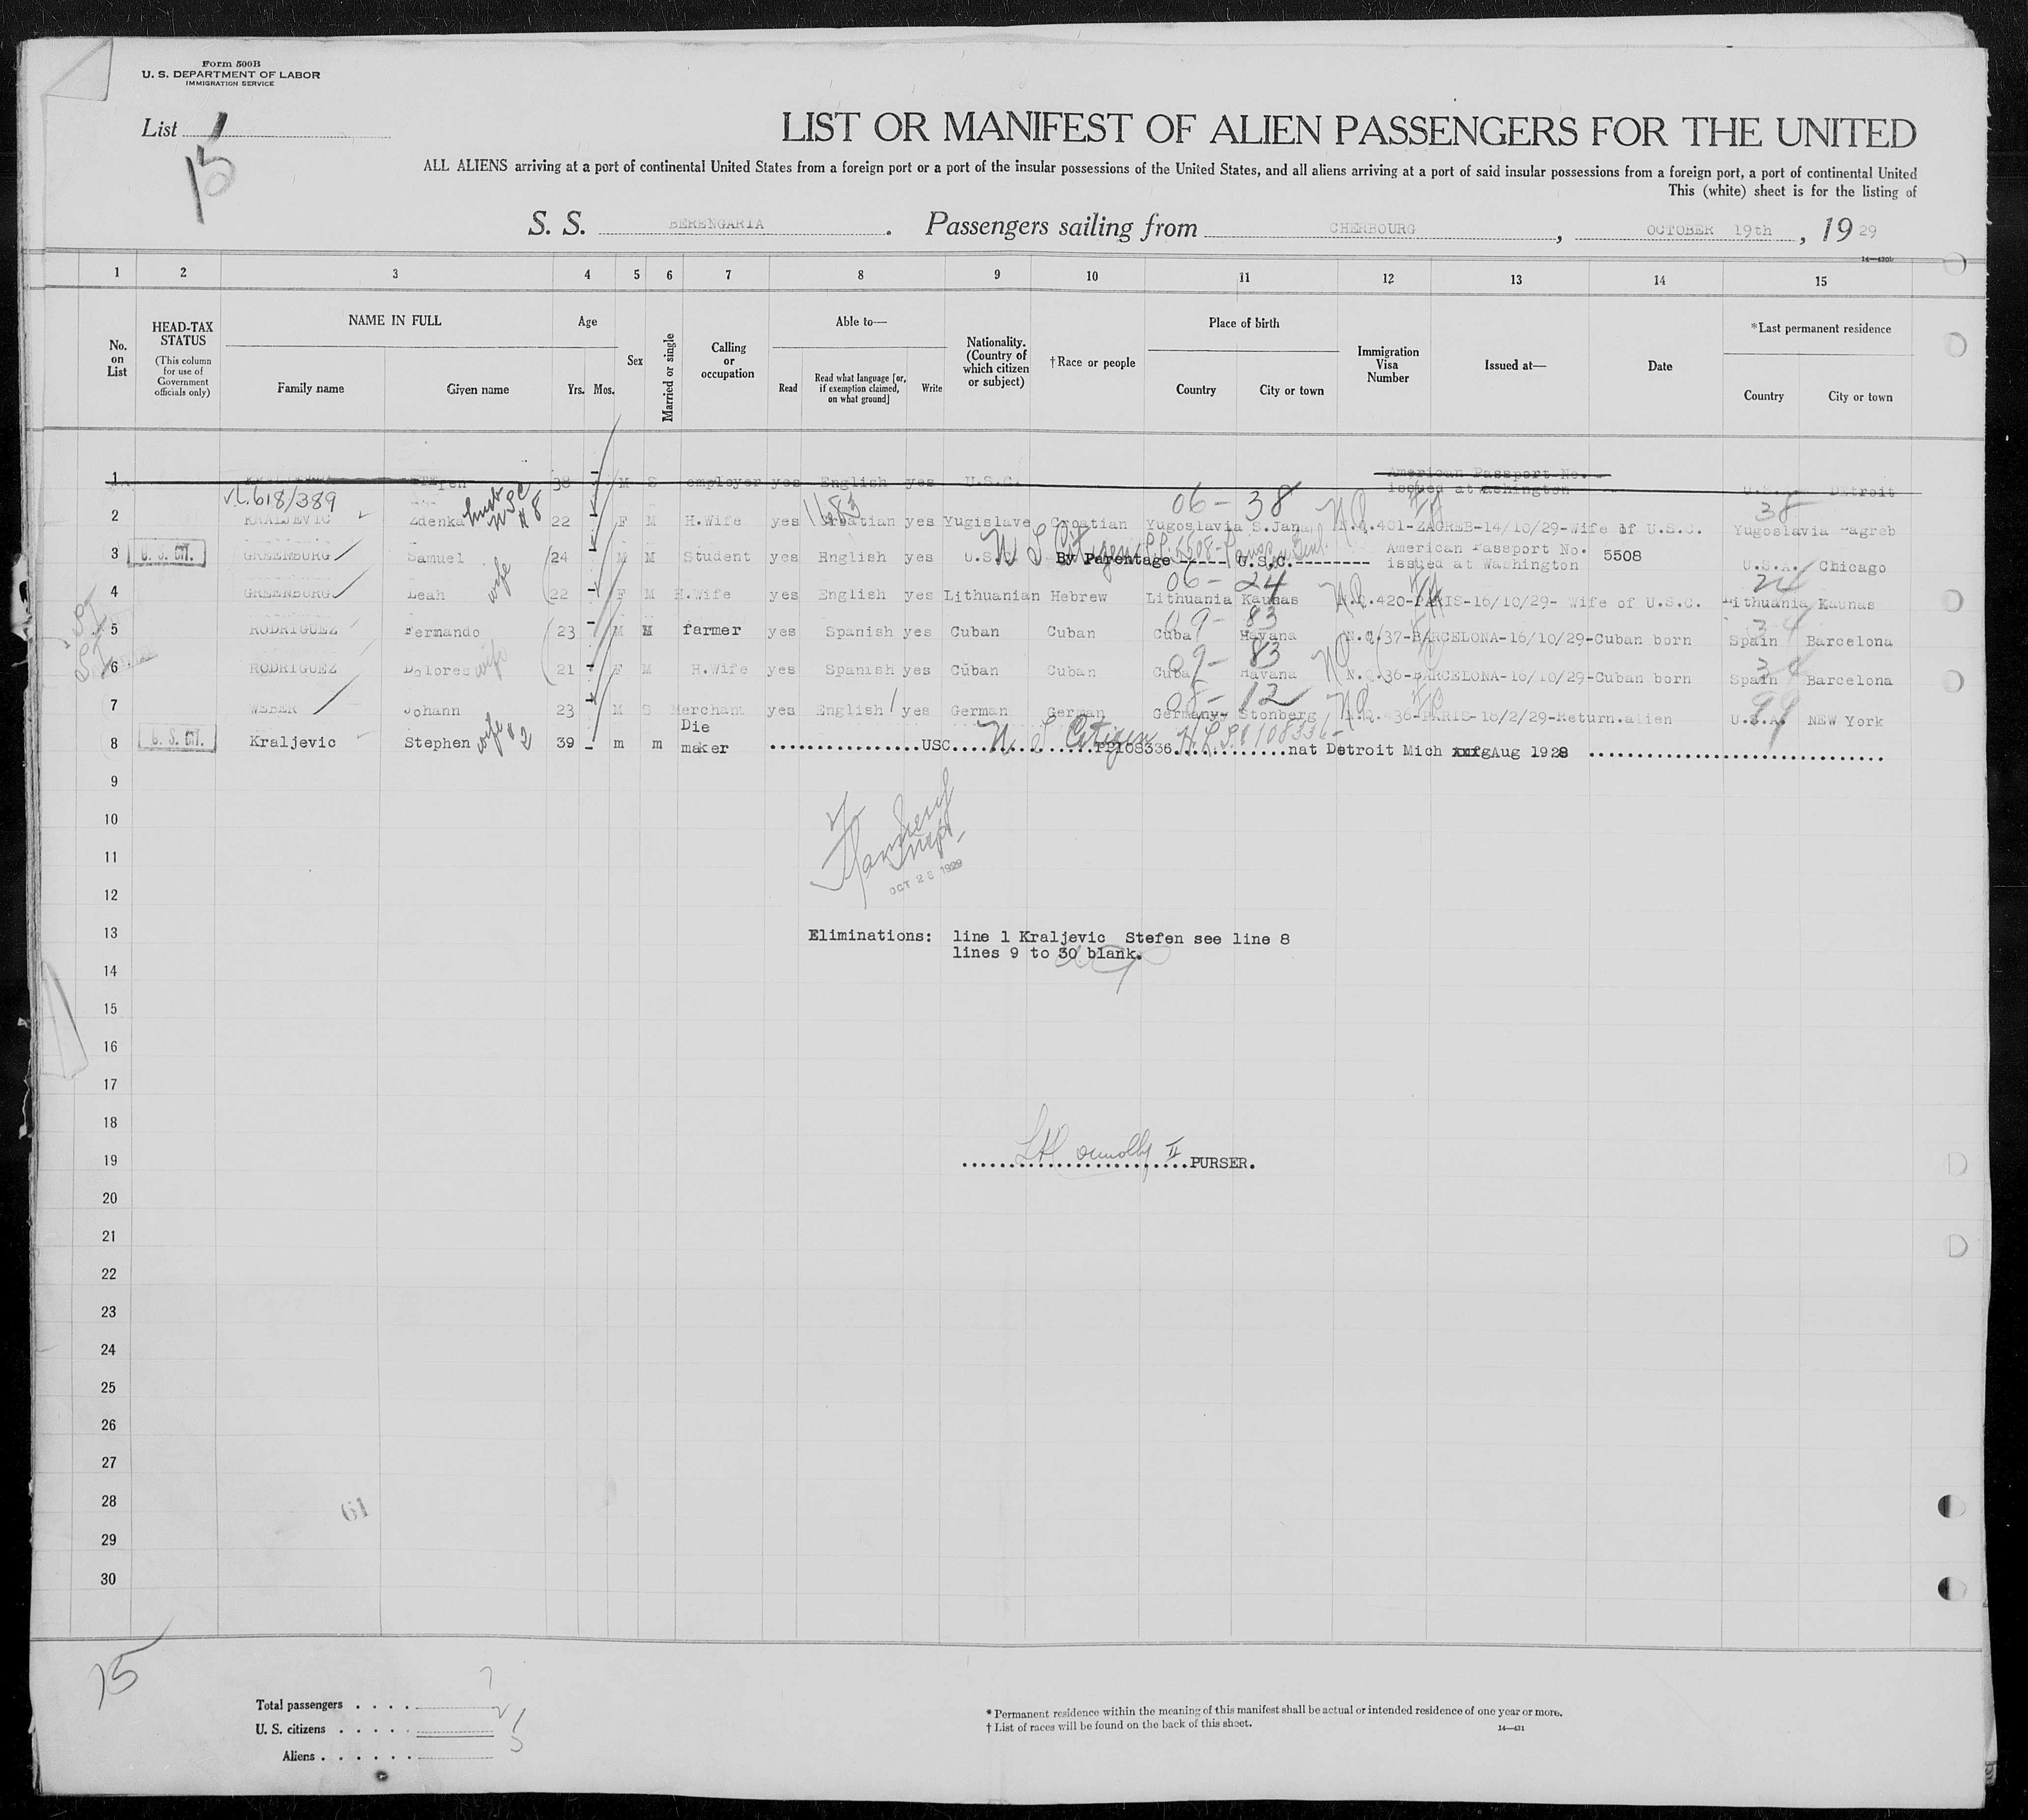 Form 500B
U. S. DEPARTMENT OF LABOR
IMMIGRATION SERVICE
List 1
15
LIST OR MANIFEST OF ALIEN PASSENGERS FOR THE UNITED
ALL ALIENS arriving at a port of continental United States from a foreign port or a port of the insular possessions of the United States, and all aliens arriving at a port of said insular possessions from a foreign port, a port of continental United
This (white) sheet is for the listing of
S. S. BERENGARIA. Passengers sailing from CHERBOURG, OCTOBER 19th, 1929
14—430b
1 2 3 4 5 6 7 8 9 10 11 12 13 14 15
No. on List
HEAD-TAX STATUS
(This column for use of Government officials only)
NAME IN FULL
Family name Given name
Age
Yrs. Mos.
Sex
Married or single
Calling or occupation
Able to—
Read Read what language [or, if exemption claimed, on what ground] Write
Nationality. (Country of which citizen or subject)
†Race or people
Place of birth
Country City or town
Immigration Visa Number
Issued at—
Date
*Last permanent residence
Country City or town
1 38 M S employer yes English yes U.S.C. American Passport No. issued at Washington Detroit
618/389 husb 1683 06-38 38
2 KRALJEVIC Zdenka # 8 22 F M H.Wife yes Croatian yes Yugislave Croatian Yugoslavia S.Jana N.Q.401-ZAGREB-14/10/29-Wife of U.S.C. Yugoslavia Zagreb
3 U. S. CIT. GREENBURG Samuel 24 M M Student yes English yes U.S. By Parentage ----- U.S.C.-------- American Passport No. issued at Washington 5508 U.S.A. Chicago
06-24 24
4 GREENBURG Leah wife 22 F M H.Wife yes English yes Lithuanian Hebrew Lithuania Kaunas N.Q.420-PARIS-16/10/29- Wife of U.S.C. Lithuania Kaunas
09-83 34
5 RODRIGUEZ Fernando 23 M M farmer yes Spanish yes Cuban Cuban Cuba Havana N.Q.37-BARCELONA-16/10/29-Cuban born Spain Barcelona
09-83 34
6 RODRIGUEZ Dolores wife 21 F M H.Wife yes Spanish yes Cuban Cuban Cuba Havana N.Q.36-BARCELONA-16/10/29-Cuban born Spain Barcelona
08-12 99
7 WEBER Johann 23 M S Merchant yes English yes German German Germany Stonberg N.Q.436-PARIS-18/2/29-Return.alien U.S.A. NEW York
8 U. S. CIT. Kraljevic Stephen wife # 2 39 m m Die maker USC PP108336 nat Detroit Mich Aug 1928
9
10
11
OCT 26 1929
12
13 Eliminations: line 1 Kraljevic Stefen see line 8
lines 9 to 30 blank.
14
15
16
17
18
19 PURSER.
20
21
22
23
24
25
26
27
28
61
29
30
15
Total passengers . . . . 7
U. S. citizens . . . . . 2
Aliens . . . . . . 5
* Permanent residence within the meaning of this manifest shall be actual or intended residence of one year or more.
† List of races will be found on the back of this sheet.
14—431